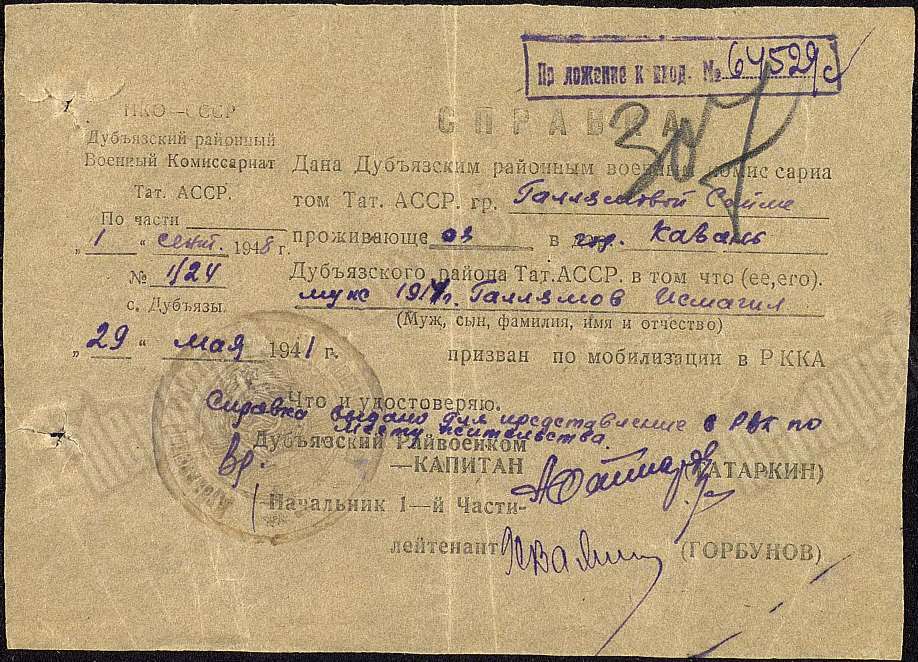 Приложение к вход. № 64529с
307
СПРАВКА
НКО—СССР
Дубъязский районный
Военный Комиссариат
Тат. АССР.
По части
„1“ сент. 1948 г.
№ 1/24
с. Дубъязы.
Дана Дубъязским районным военным комиссариа
том Тат. АССР. гр. Галлямовой Сайме
проживающе оз в гор. Казань
Дубъязского района Тат. АССР. в том что (ее, его).
муж 1917г. Галлямов Исмагил
(Муж, сын, фамилия, имя и отчество)
„29“ мая 1941 г. призван по мобилизации в РККА
Что и удостоверяю.
Справка выдано для представление в РВК по
месту жительства
Вр. Дубъязский Райвоенком
—КАПИТАН (АТАРКИН)
Начальник 1—й Части-
лейтенант (ГОРБУНОВ)